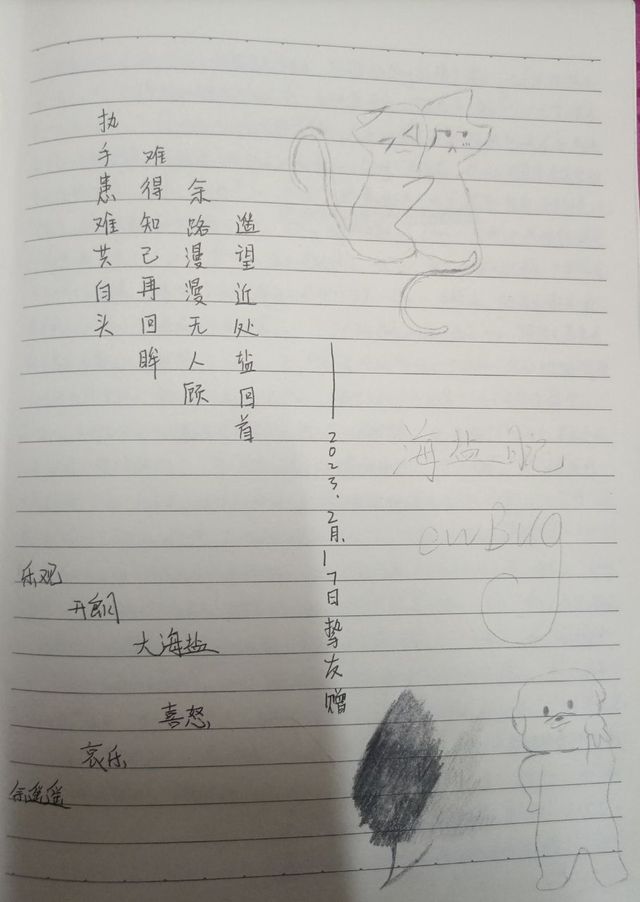 遥望近处盐回首
余路漫漫无人顾
难得知己再回眸
执手患难共白头
2023.2月.17日挚友赠
海盐日记
owBug
乐观
开朗
大海盐
喜怒
哀乐
余遥遥